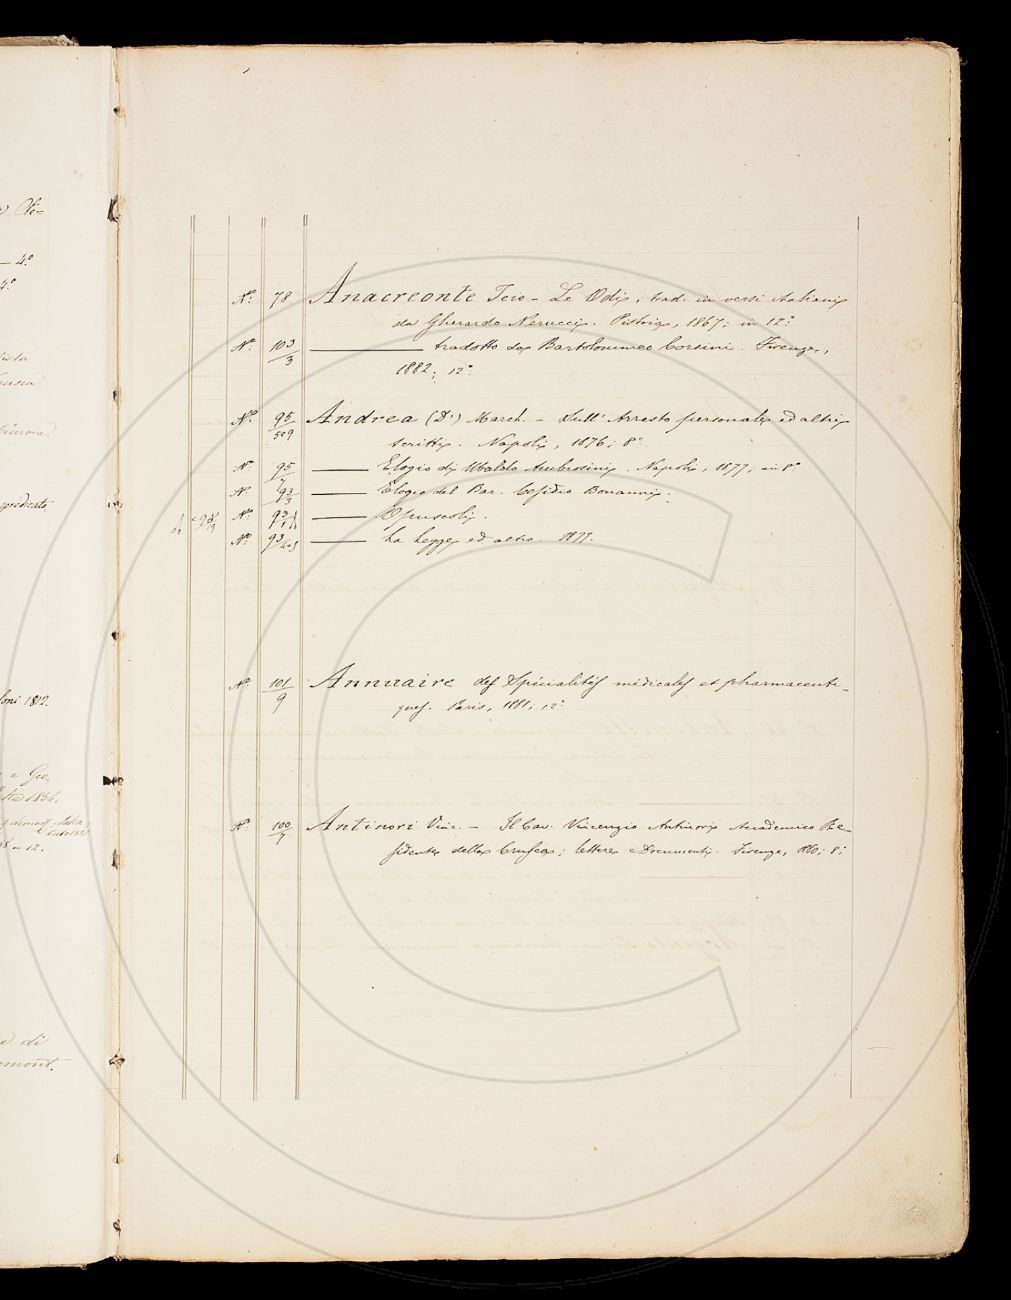 N.º 78 Anacreonte Teio – Le Odi; trad. in versi italiani
da Gherardo Nerucci. Pistoia, 1867; in 12º
N.º 103/3 ——— tradotto da Bartolommeo Corsini. Firenze,
1882; 12º
N.º 95/509 Andrea (D') March. – Dell' Arresto personale ed altri
scritti. Napoli, 1876; 8º
N.º 95/7 ——— Elogio di Ubaldo Ambrosini. Napoli, 1877; in 8º
N.º 93/3 ——— Elogio del Bar. Cesidio Bonanni.
N.º ——— Opuscoli.
N.º ——— La Legge ed altro. 1877.
N.º 101/9 Annuaire des Spécialités médicales et pharmaceuti-
ques. Paris, 1881; 12º
N.º 100/7 Antinori Vinc. – Il Cav. Vincenzio Antinori Accademico Re-
sidente della Crusca; lettere e Documenti. Firenze, 1860; 8º
— 4º
4º
Cicerone
predicato
loni 1812.
e Ge
1836.
in 12.
e di
emont.